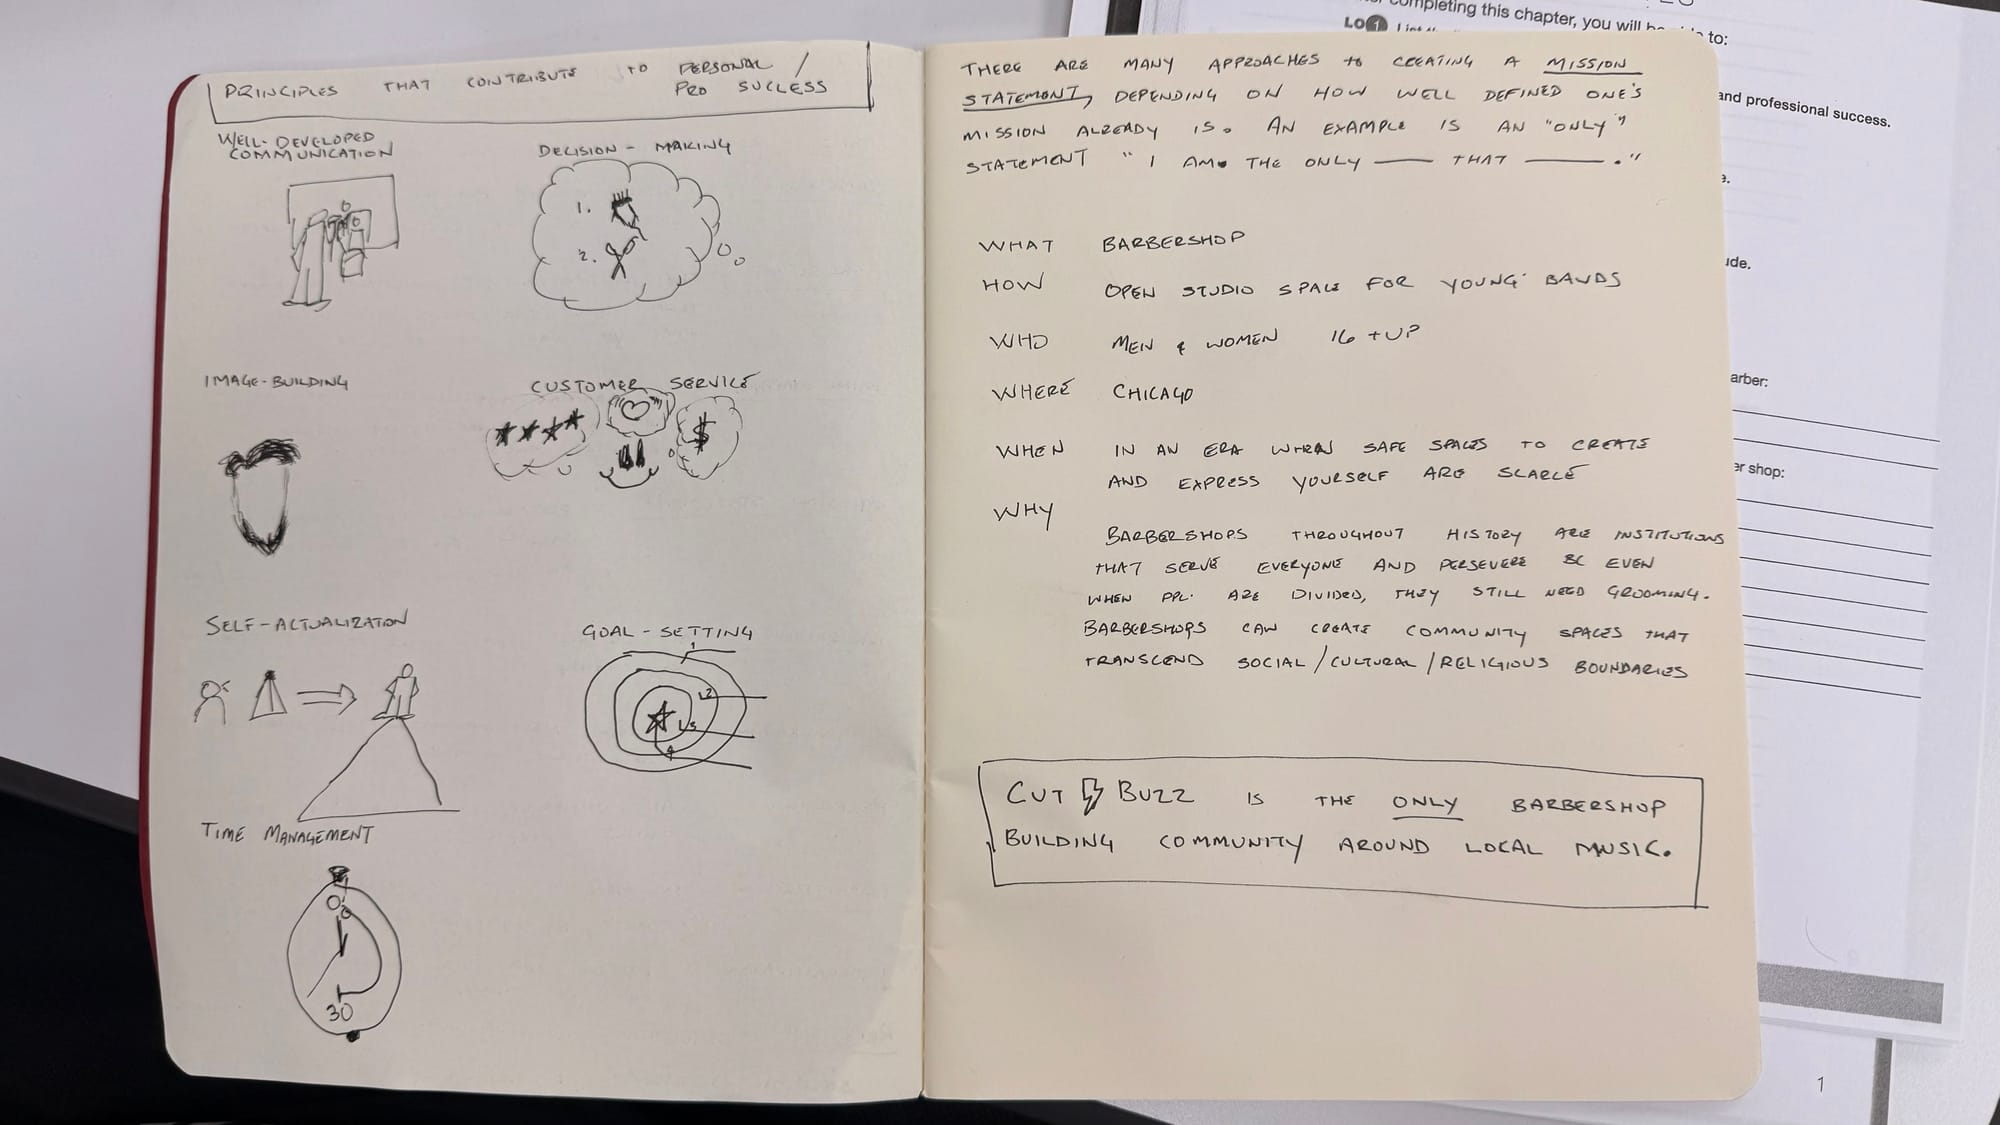 PRINCIPLES THAT CONTRIBUTE TO PERSONAL /
PRO SUCCESS
WELL-DEVELOPED
COMMUNICATION
DECISION-MAKING
1.
2.
IMAGE-BUILDING
CUSTOMER SERVICE
$
SELF-ACTUALIZATION
GOAL-SETTING
1
2
3
4
TIME MANAGEMENT
30
THERE ARE MANY APPROACHES to CREATING A MISSION
STATEMENT, DEPENDING ON HOW WELL DEFINED ONE'S
MISSION ALREADY IS. AN EXAMPLE IS AN "ONLY"
STATEMENT "I AM THE ONLY ____ THAT ____."
WHAT BARBERSHOP
HOW OPEN STUDIO SPACE FOR YOUNG BANDS
WHO MEN & WOMEN 16 + UP
WHERE CHICAGO
WHEN IN AN ERA WHEN SAFE SPACES TO CREATE
AND EXPRESS YOURSELF ARE SCARCE
WHY
BARBERSHOPS THROUGHOUT HISTORY ARE INSTITUTIONS
THAT SERVE EVERYONE AND PERSEVERE BC EVEN
WHEN PPL. ARE DIVIDED, THEY STILL NEED GROOMING.
BARBERSHOPS CAN CREATE COMMUNITY SPACES THAT
TRANSCEND SOCIAL/CULTURAL/RELIGIOUS BOUNDARIES
CUT BUZZ IS THE ONLY BARBERSHOP
BUILDING COMMUNITY AROUND LOCAL MUSIC.
completing this chapter, you will be to:
LO 1
and professional success.
arber:
shop:
1